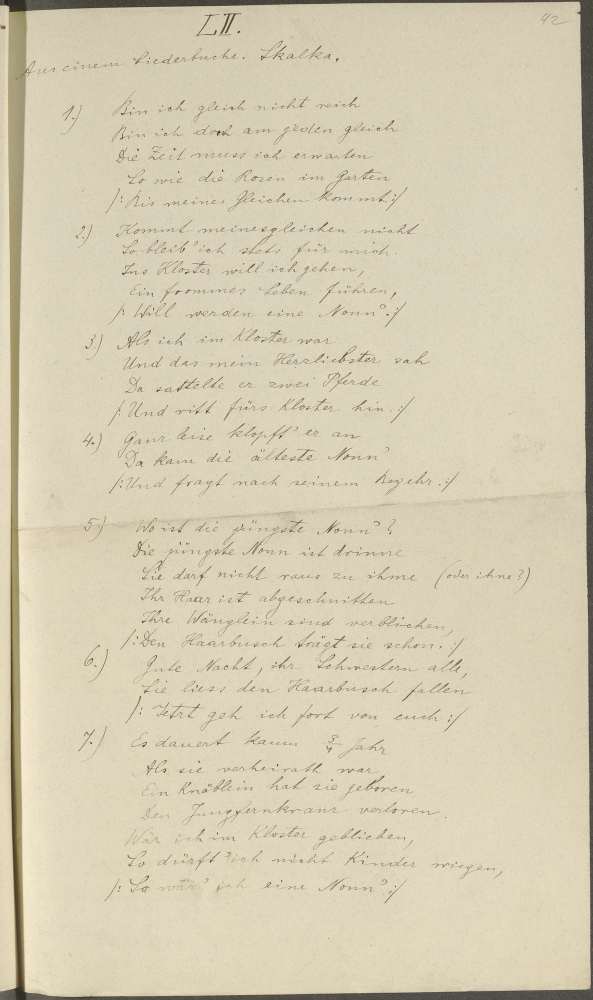 LII.
42
Aus einem Liederbuche. Skalka.
1.) Bin ich gleich nicht reich
Bin ich doch am jeden gleich
Die Zeit muss ich erwarten
So wie die Rosen im Garten
/: Bis meines Gleichen kommt :/
2.) Kommt meinesgleichen nicht
So bleib' ich stets für mich.
Ins Kloster will ich gehen,
Ein frommes Leben führen,
/: Will werden eine Nonn'. :/
3.) Als ich im Kloster war
Und das mein Herzliebster sah
Da sattelte er zwei Pferde
/: Und ritt fürs Kloster hin. :/
4.) Ganz leise klopft' er an
Da kam die älteste Nonn'
/: Und fragt nach seinem Begehr. :/
5.) Wo ist die jüngste Nonn'?
Die jüngste Nonn ist drinne
Sie darf nicht raus zu ihme (oder ihne?)
Ihr Haar ist abgeschnitten
Ihre Wänglein sind verblichen,
/: Den Haarbusch trägt sie schon. :/
6.) Gute Nacht, ihr Schwestern alle,
Sie liess den Haarbusch fallen
/: Jetzt geh ich fort von euch :/
7.) Es dauert kaum 3/4 Jahr
Als sie verheirath war
Ein Knäblein hat sie geboren
Den Jungfernkranz verloren.
Wär ich im Kloster geblieben,
So dürft' ich nicht Kinder wiegen,
/: So wär' ich eine Nonn'. :/